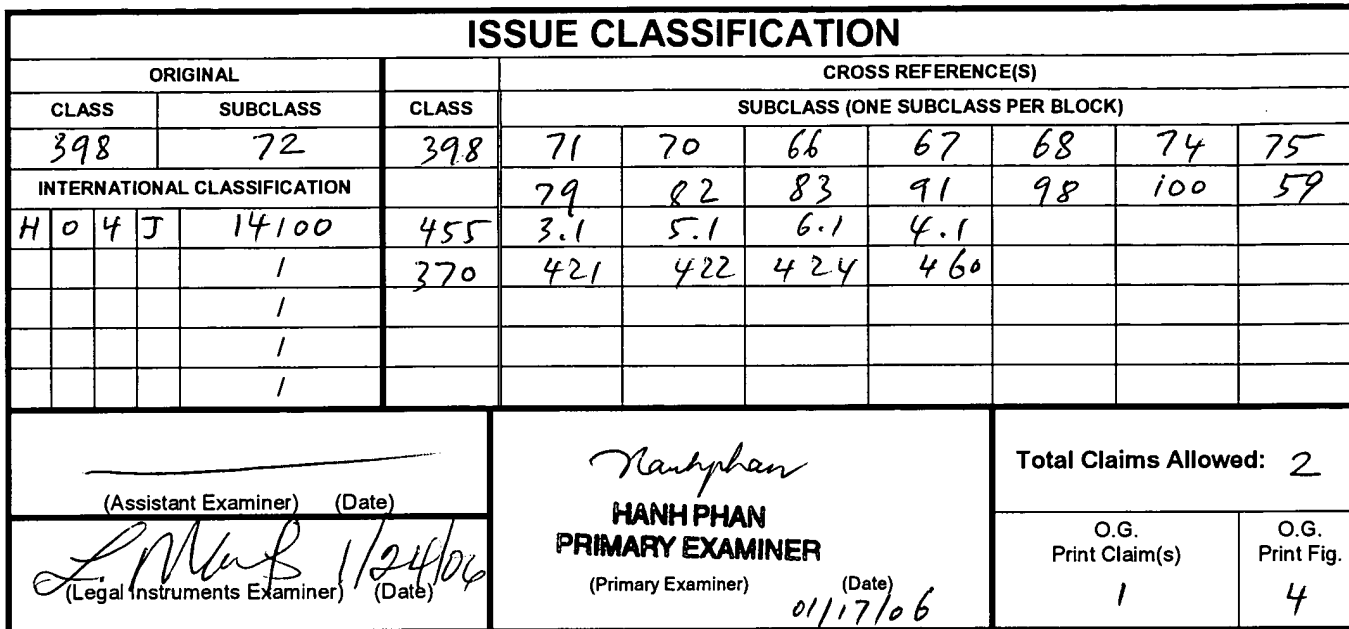 ISSUE CLASSIFICATION
ORIGINAL CROSS REFERENCE(S)
CLASS SUBCLASS CLASS SUBCLASS (ONE SUBCLASS PER BLOCK)
398 72 398 71 70 66 67 68 74 75
INTERNATIONAL CLASSIFICATION 79 82 83 91 98 100 59
H 0 4 J 14/00 455 3.1 5.1 6.1 4.1
/ 370 421 422 424 460
/
/
/
(Assistant Examiner) (Date)
L. 1/24/06
(Legal Instruments Examiner) (Date)
Hanhphan
HANH PHAN
PRIMARY EXAMINER
(Primary Examiner) (Date)
01/17/06
Total Claims Allowed: 2
O.G.
Print Claim(s)
1
O.G.
Print Fig.
4